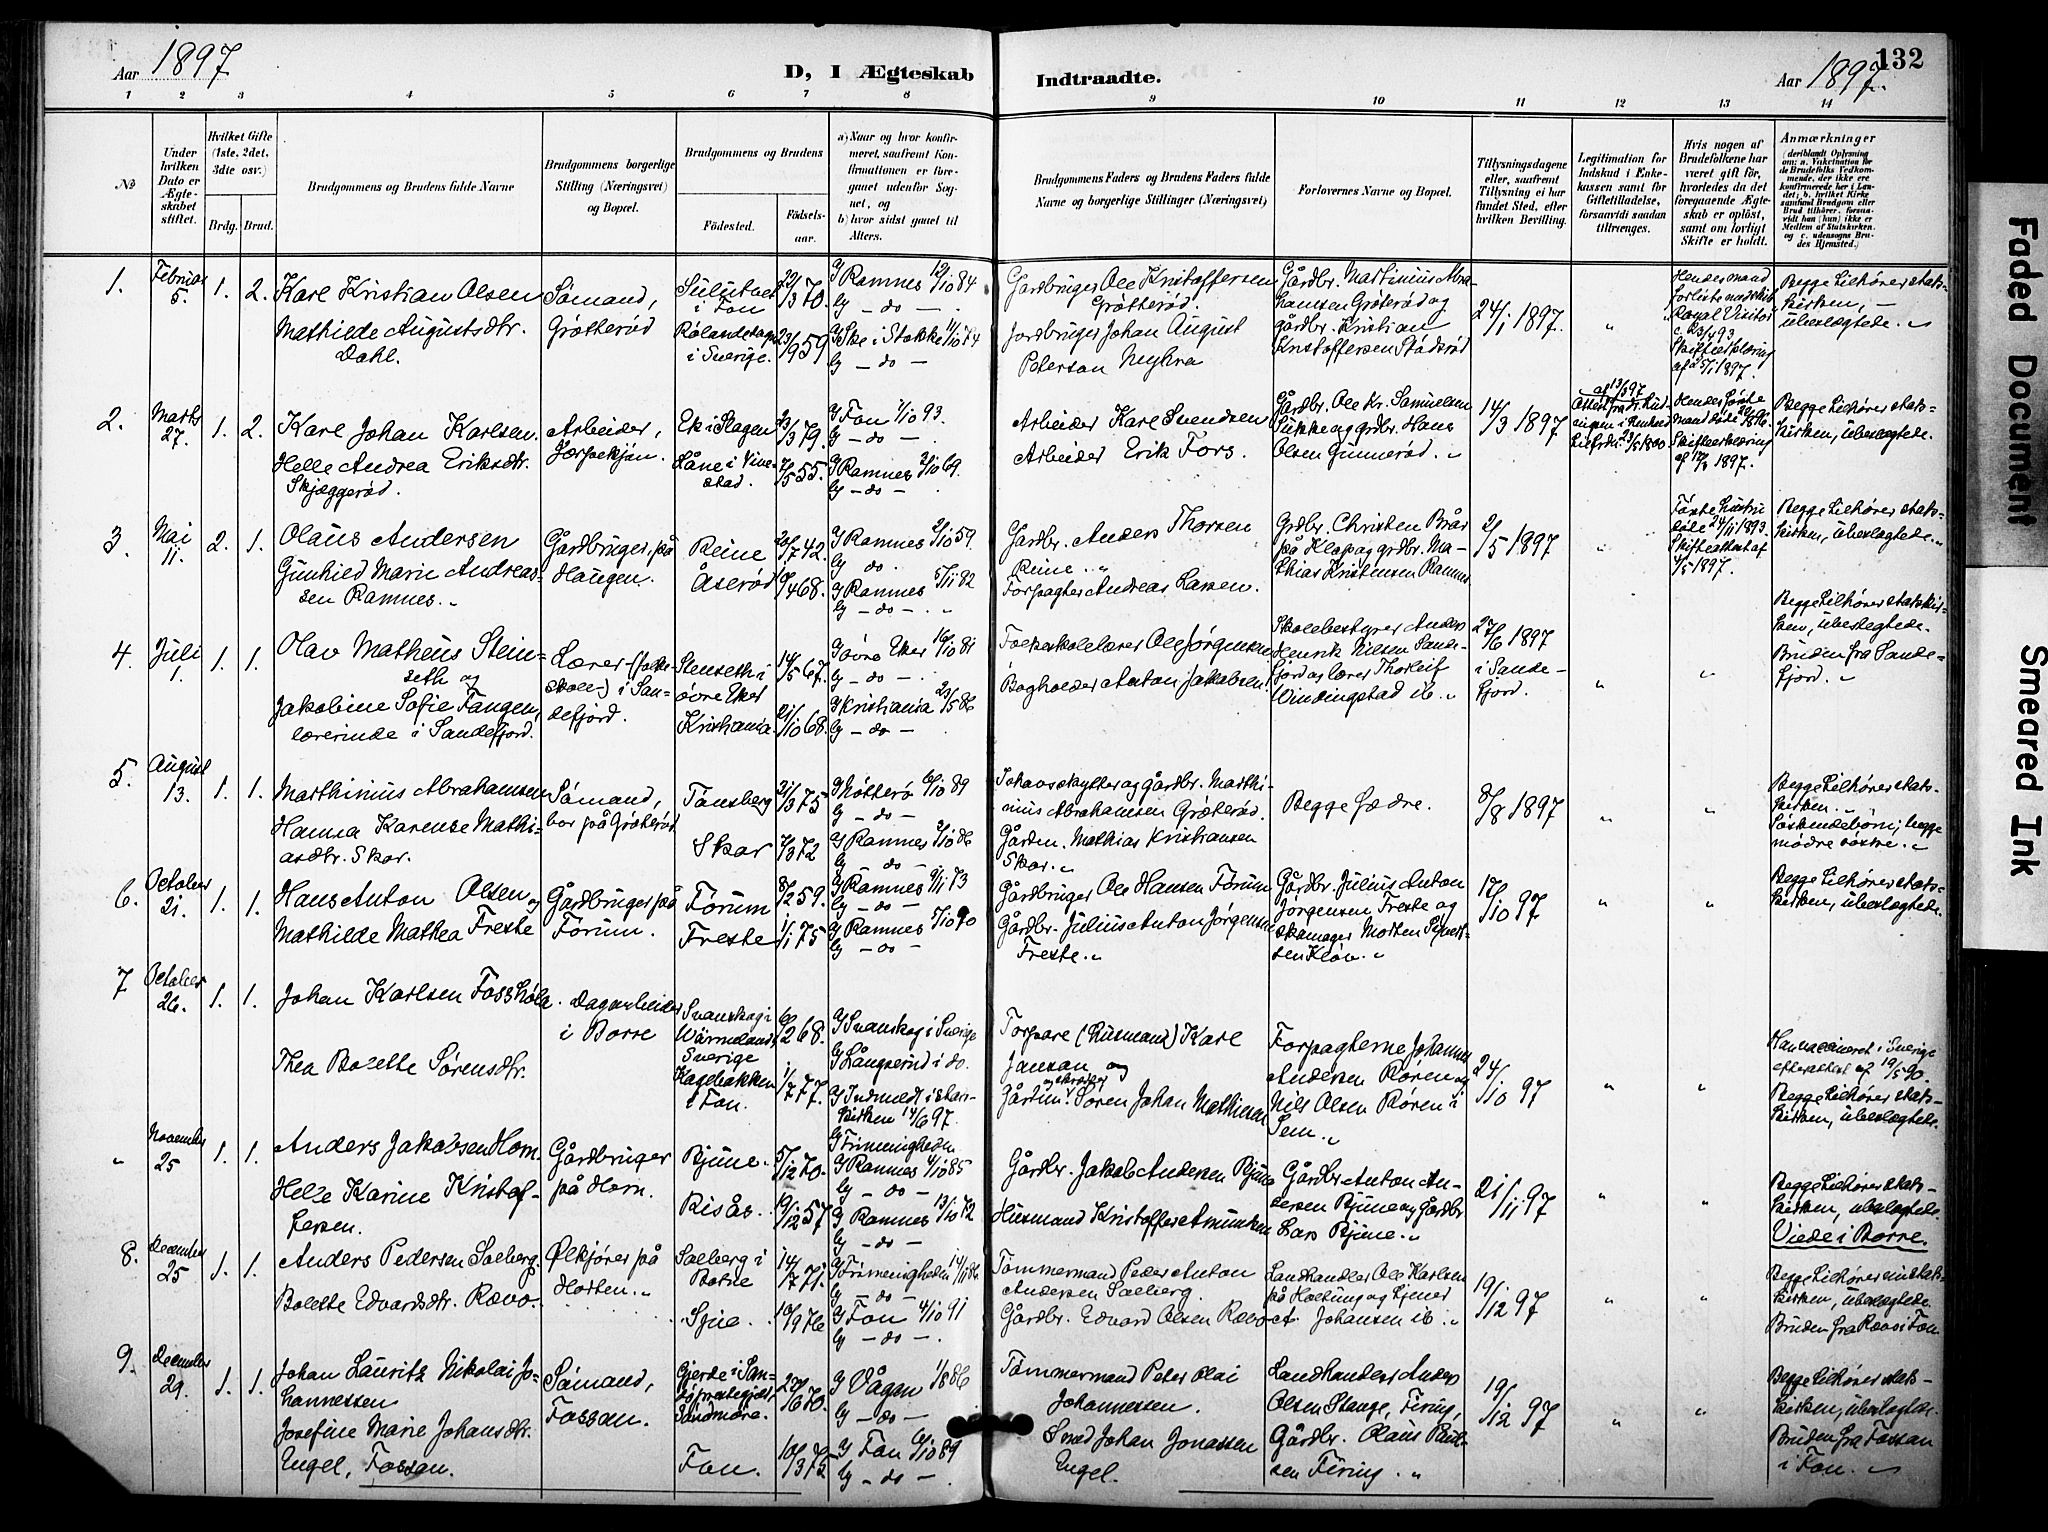 Aar 1897
D, I Ægteskab
Indtraadte.
Aar 1897.
132
1 2 3 4 5 6 7 8 9 10 11 12 13 14
No
Under hvilken Dato er Ægteskabet stiftet.
Hvilket Gifte (1ste, 2det, 3die osv.)
Brdg. Brud.
Brudgommens og Brudens fulde Navne
Brudgommens borgerlige Stilling (Næringsvei) og Bopæl.
Brudgommens og Brudens
Fødested.
Fødselsaar.
a) Naar og hvor konfirmeret, saafremt Konfirmationen er foregaaet udenfor Sognet, og
b) hvor sidst gaaet til Alters.
Brudgommens Faders og Brudens Faders fulde Navne og borgerlige Stillinger (Næringsvei)
Forlovernes Navne og Bopæl.
Tillysningsdagene eller, saafremt Tillysning ei har fundet Sted, efter hvilken Bevilling.
Legitimation for Indskud i Enkekassen samt for Giftetilladelse, forsaavidt saadan tiltrænges.
Hvis nogen af Brudefolkene har været gift før, hvorledes da det foregaaende Ægteskab er opløst, samt om lovligt Skifte er holdt.
Anmærkninger
(deriblandt Oplysning om: a. Vakcination for de Brudefolks Vedkommende, der ikke ere konfirmerede her i Landet; b. hvilket Kirkesamfund Brudgom eller Brud tilhører, forsaavidt han (hun) ikke er Medlem af Statskirken, og c. udensogns Brudes Hjemsted.)
1. Februar 5. 1. 2.
Karl Kristian Olsen
Mathilde Augustsdtr. Dahl.
Sømand, Grøtterød
i Fon
i Sverige.
22/3 70.
23/9 59
Ramnes 12/10 84
– do –
Ske i Stokke 11/10 74
– do –
Gardbruger Ole Kristoffersen Grøtterød.
Jordbruger Johan August Peterson Nyhra
Gårdbr. Martinius Abrahamsen Grøterød og gårdbr. Kristian Kristoffersen Stådsrød
24/1 1897.
Hendes mand forliste med skib Royal Visitor
af 25/1 1897.
Begge tilhører statskirken, – ubeslægtede.
2. Marts 27. 1. 2.
Karl Johan Karlsen.
Helle Andrea Eriksdtr. Skjæggerød.
Arbeider, Jarpekjøn.
Ek i Slagen
Låne i Vinestad.
23/3 79.
7/5 55.
Fon 1/10 93.
– do –
Ramnes 3/10 69.
– do –
Arbeider Karl Svendsen
Arbeider Erik Fors.
Gårdbr. Ole Kr. Samuelsen Sukke og grdbr. Hans Olsen Gunnerød.
14/3 1897
Hendes første mand døde
1897.
Begge tilhører statskirken, ubeslægtede.
3. Mai 11. 2. 1.
Olaus Andersen
Gunhild Marie Andreassen Ramnes.
Gårdbruger på Haugen.
Reine
Åserød
20/7 42.
9/4 68.
Ramnes 2/10 59.
do.
Ramnes 5/11 82
– do –
Gardbr. Anders Thorsen Reine.
Forpagter Andreas Larsen.
Grdbr. Christen Brår på Klop og grdbr. Mathias Kristensen Ramnes
2/5 1897
Første hustru døde 24/11 1893. Skifteattest af 9/5 1897.
Begge tilhører statskirken, ubeslægtede.
4. Juli 1. 1. 1.
Olav Matheus Steinseth og
Jakobine Sofie Fangen, lærerinde i Sandefjord.
Lærer (folkeskole) i Sandefjord.
Stenseth i øvre Eker
Kristiania.
14/5 67.
21/10 68.
Øvre Eker 16/10 81
– do –
Kristiania 23/5 86
– do –
Folkeskolelærer Ole Jørgensen
Bogholder Anton Jakobsen.
Skolebestyrer Anders Henrik Nilsen Sandefjord og lærer Thorleif Vindingstad ib.
27/6 1897 i Sandefjord.
Begge tilhører statskirken, ubeslægtede. Bruden fra Sandefjord.
5. August 13. 1. 1.
Marthinius Abrahamsen
Hanna Karense Mathiasdtr. Skar.
Sømand, bor på Grøterød
Tønsberg
Skar
21/3 75
7/3 72
Nøtterø 6/10 89
– do –
Ramnes 3/10 86
– do –
og Gårdbr. Marthinius Abrahamsen Grøterød.
Gården. Mathias Kristiansen Skar.
Begge Fædre.
8/8 1897
Begge tilhører statskirken.
Søskendebørn; begge mødre søstre.
6. October 21. 1. 1.
Hans Anton Olsen og
Mathilde Mathea Freste
Gårdbruger på Førum.
Førum
Freste
8/2 59.
1/1 75
Ramnes 9/11 73
– do –
Ramnes 5/10 90
– do –
Gårdbruger Ole Hansen Førum
Gårdbr. Julius Anton Jørgensen Freste.
Gårdbr. Julius Anton Jørgensen Freste og skomager Morten Sivertsen Kløv.
17/10 97
Begge tilhører statskirken, ubeslægtede.
7 October 26. 1. 1.
Johan Karlsen Fosshøla.
Thea Bolette Sørensdtr.
Dagarbeider i Borre
Svanskog i Wärmland Sverige
Kagebakken i Fon.
6/2 68.
1/7 77.
Svanskog i Sverige
Långserud i do.
Indmeldt i statskirken 14/6 97.
Torpare (Husmand) Karl Janson og
Gårdm. Søren Johan Mathisen
Forpagterne Johannes Andersen Røren og Nils Olsen Røren i Sem.
24/10 97
Han vaccineret i Sverige efter attest af 19/5 90.
Begge tilhører statskirken, ubeslægtede.
„ November 25 1. 1.
Anders Jakobsen Hom.
Helle Karine Kristoffersen.
Gårdbruger på Hom.
Bjune.
Risås.
5/12 70.
19/12 57
Trimenigheden
Ramnes 4/10 85
– do –
Ramnes 13/10 72
– do –
Gårdbr. Jakob Andersen Bjune
Husmand Kristoffer Amundsen
Gårdbr. Anton Andersen Bjune og Gårdbr. Lars Bjune.
21/11 97
Begge tilhører statskirken, ubeslægtede.
Viede i Borre.
8. December 25 1. 1.
Anders Pedersen Solberg.
Bolette Edvardsdtr. Rævo.
Ølkjører på Horten.
Solberg i Botne
Sjue.
14/7 71.
10/9 76
Trimenigheden 14/11 86.
– do –
Fon 4/10 91
– do –
Tømmermand Peder Anton Andersen Solberg.
Gårdbr. Edvard Olsen Rævo
Landhandler Ole Karlsen på Holtung og tjener A. Johansen ib.
19/12 97
Begge tilhører statskirken, ubeslægtede.
Bruden fra Rævo i Fon
9. December 29. 1. 1.
Johan Lauritz Nikolai Johannessen
Josefine Marie Johansdtr. Engel, Fossan.
Sømand, Fossan.
Gjerde i
Søndmøre.
Fon.
27/6 70.
10/3 75
Vågan 1/8 86
– do –
Fon 6/10 89
– do –
Tømmermand Peter Olai Johannessen.
Smed Johan Jonassen Engel.
Landhandler Anders Olsen Stange, Firing,
Gårdbr. Olaus Paulsen Firing.
19/12 97
Begge tilhører statskirken, ubeslægtede.
Bruden fra Fossan i Fon.
Faded Document
Smeared Ink